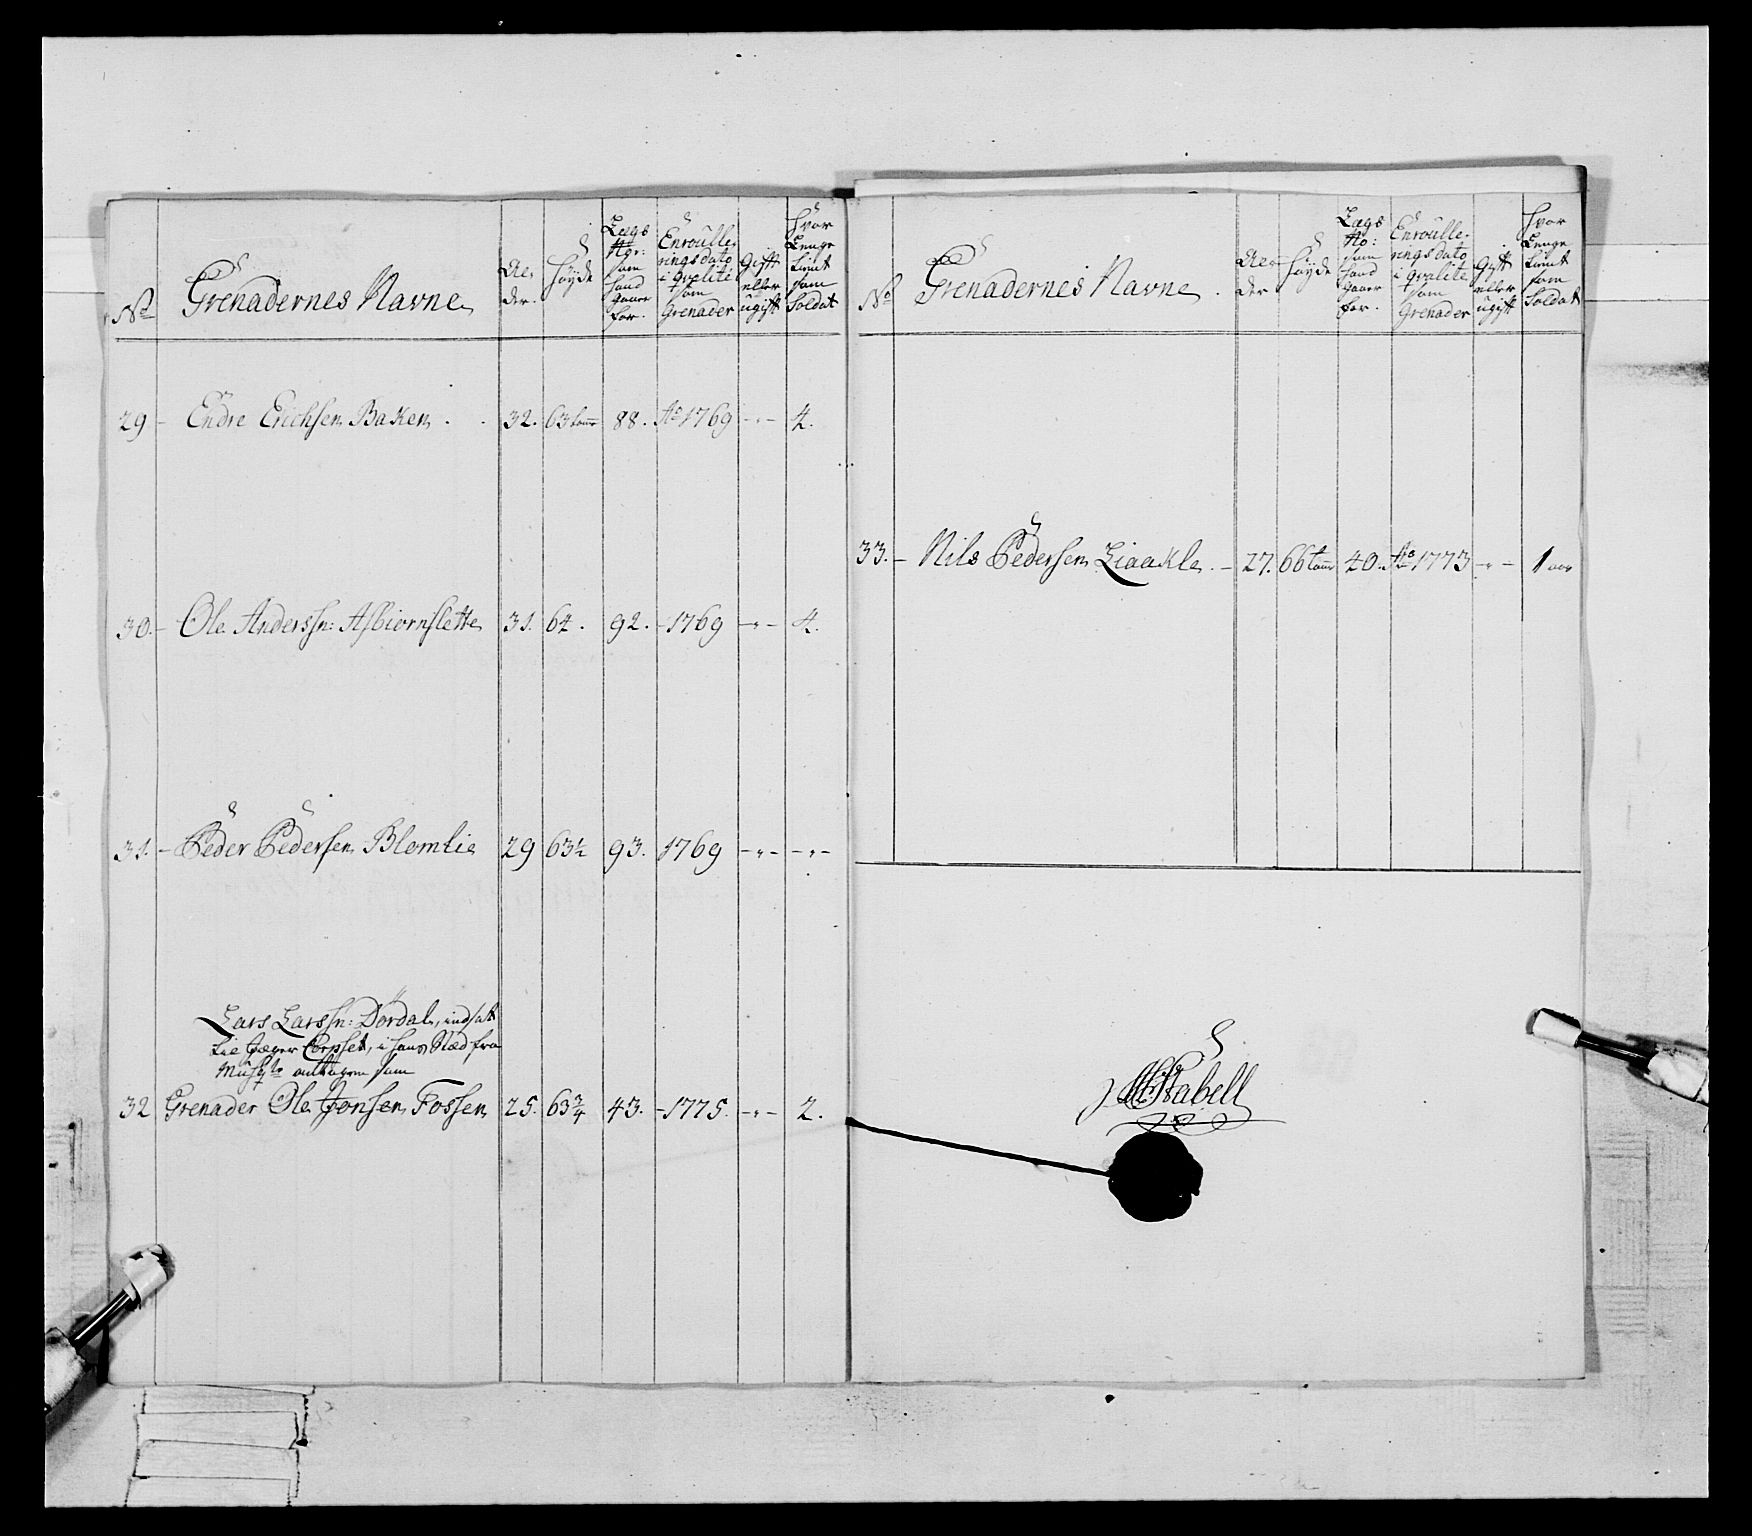 No
Grenadernes Navne
Al-
der.
Høyde
Lægs
No:
som
hand
staaer
for.
Enroulle-
rings dato
i qvalité
som
Grenader
Gift
eller
ugift
hvor
Lenge
tient
som
Soldat
29 - Endre Erichsen Baken . . 32. 63 tomr 88. Ao 1769 -"- 4.
30. - Ole Anderssn: Asbiørnslette 31. 64. 92. - 1769 -"- 4.
31. - Peder Pedersen Blomlie 29 63½ 93. 1769 -"- -"-
Lars Larssn: Dørdal, indsatt
tie Jæger Corpset, i hans Stæd fra
Musqtr antagen som
32 Grenader Ole Jonsen Fossen 25. 63¾ 43. - 1775. -"- 2.
No
Grenadernes Navne.
Al-
der
Høyde
Lægs
No:
som
hand
staaer
for.
Enroulle-
rings dato
i qvalite
som
Grenader
Gift
eller
ugift
hvor
Lenge
tient
som
Soldat
33. - Nils Pedersen Liaakle. - 27. 66 tomr 40. Ao 1773 -"- 1 aar
Stabell